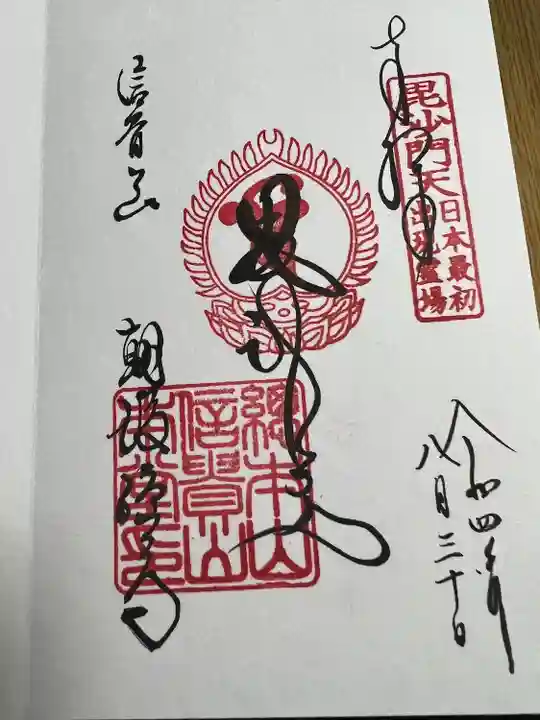 奉拝
毘沙門天
日本最初
出現霊場
令和四年
八月三十日
毘沙門天
信貴山
朝護孫子寺
總本山
信貴山
本堂印